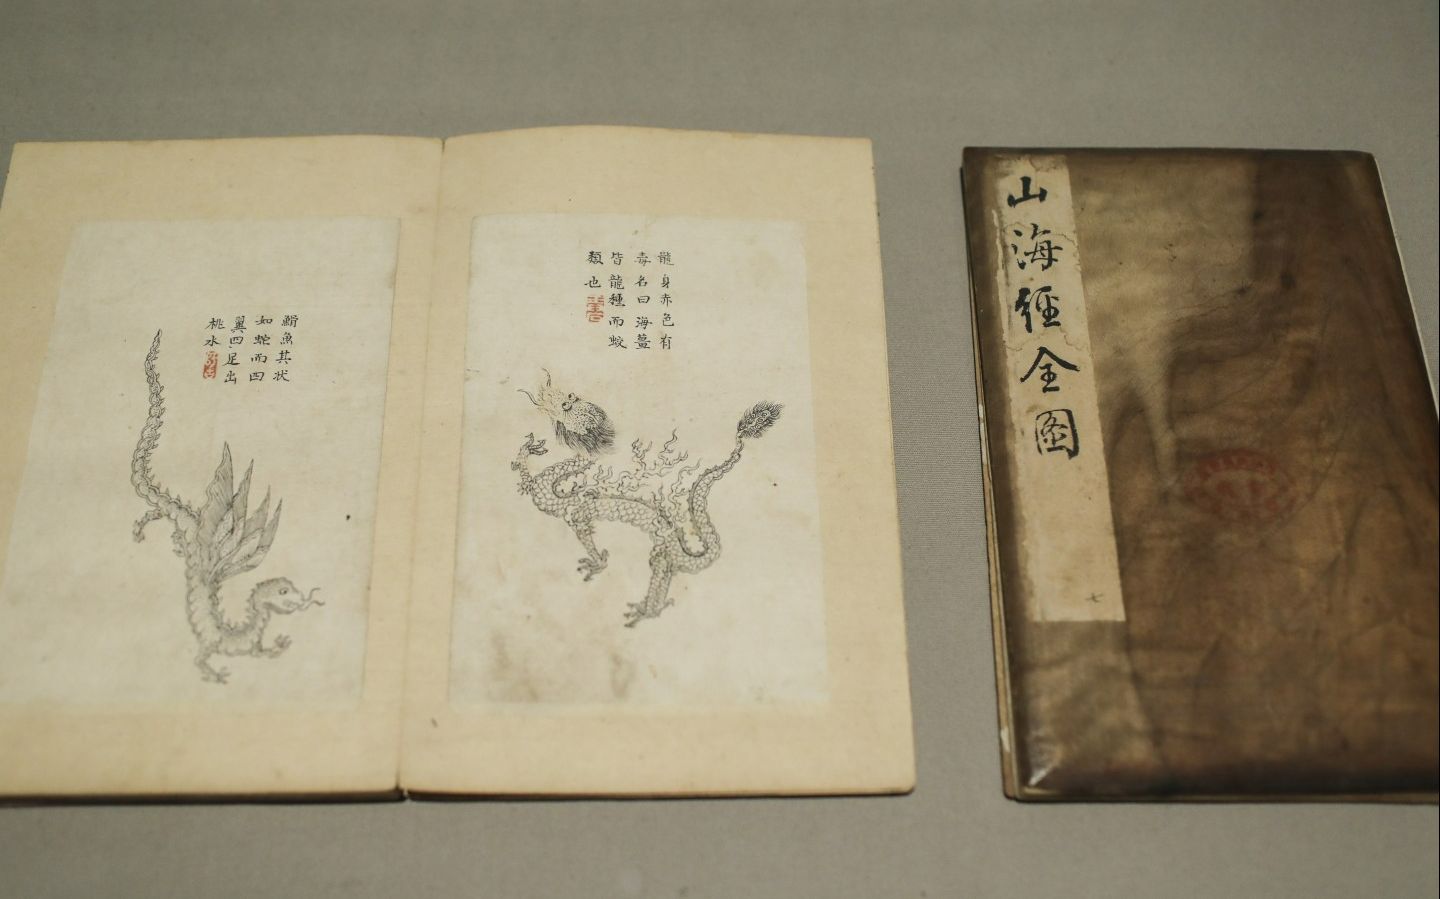 龍身赤色有
毒名曰海薑
皆龍種而蛟
類也
魚其状
如蛇而四
翼四足出
桃水
山海經全图
七